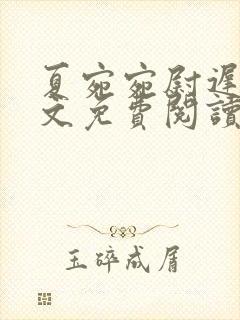 夏宛宛尉遲
文免費閱讀
玉碎成屑